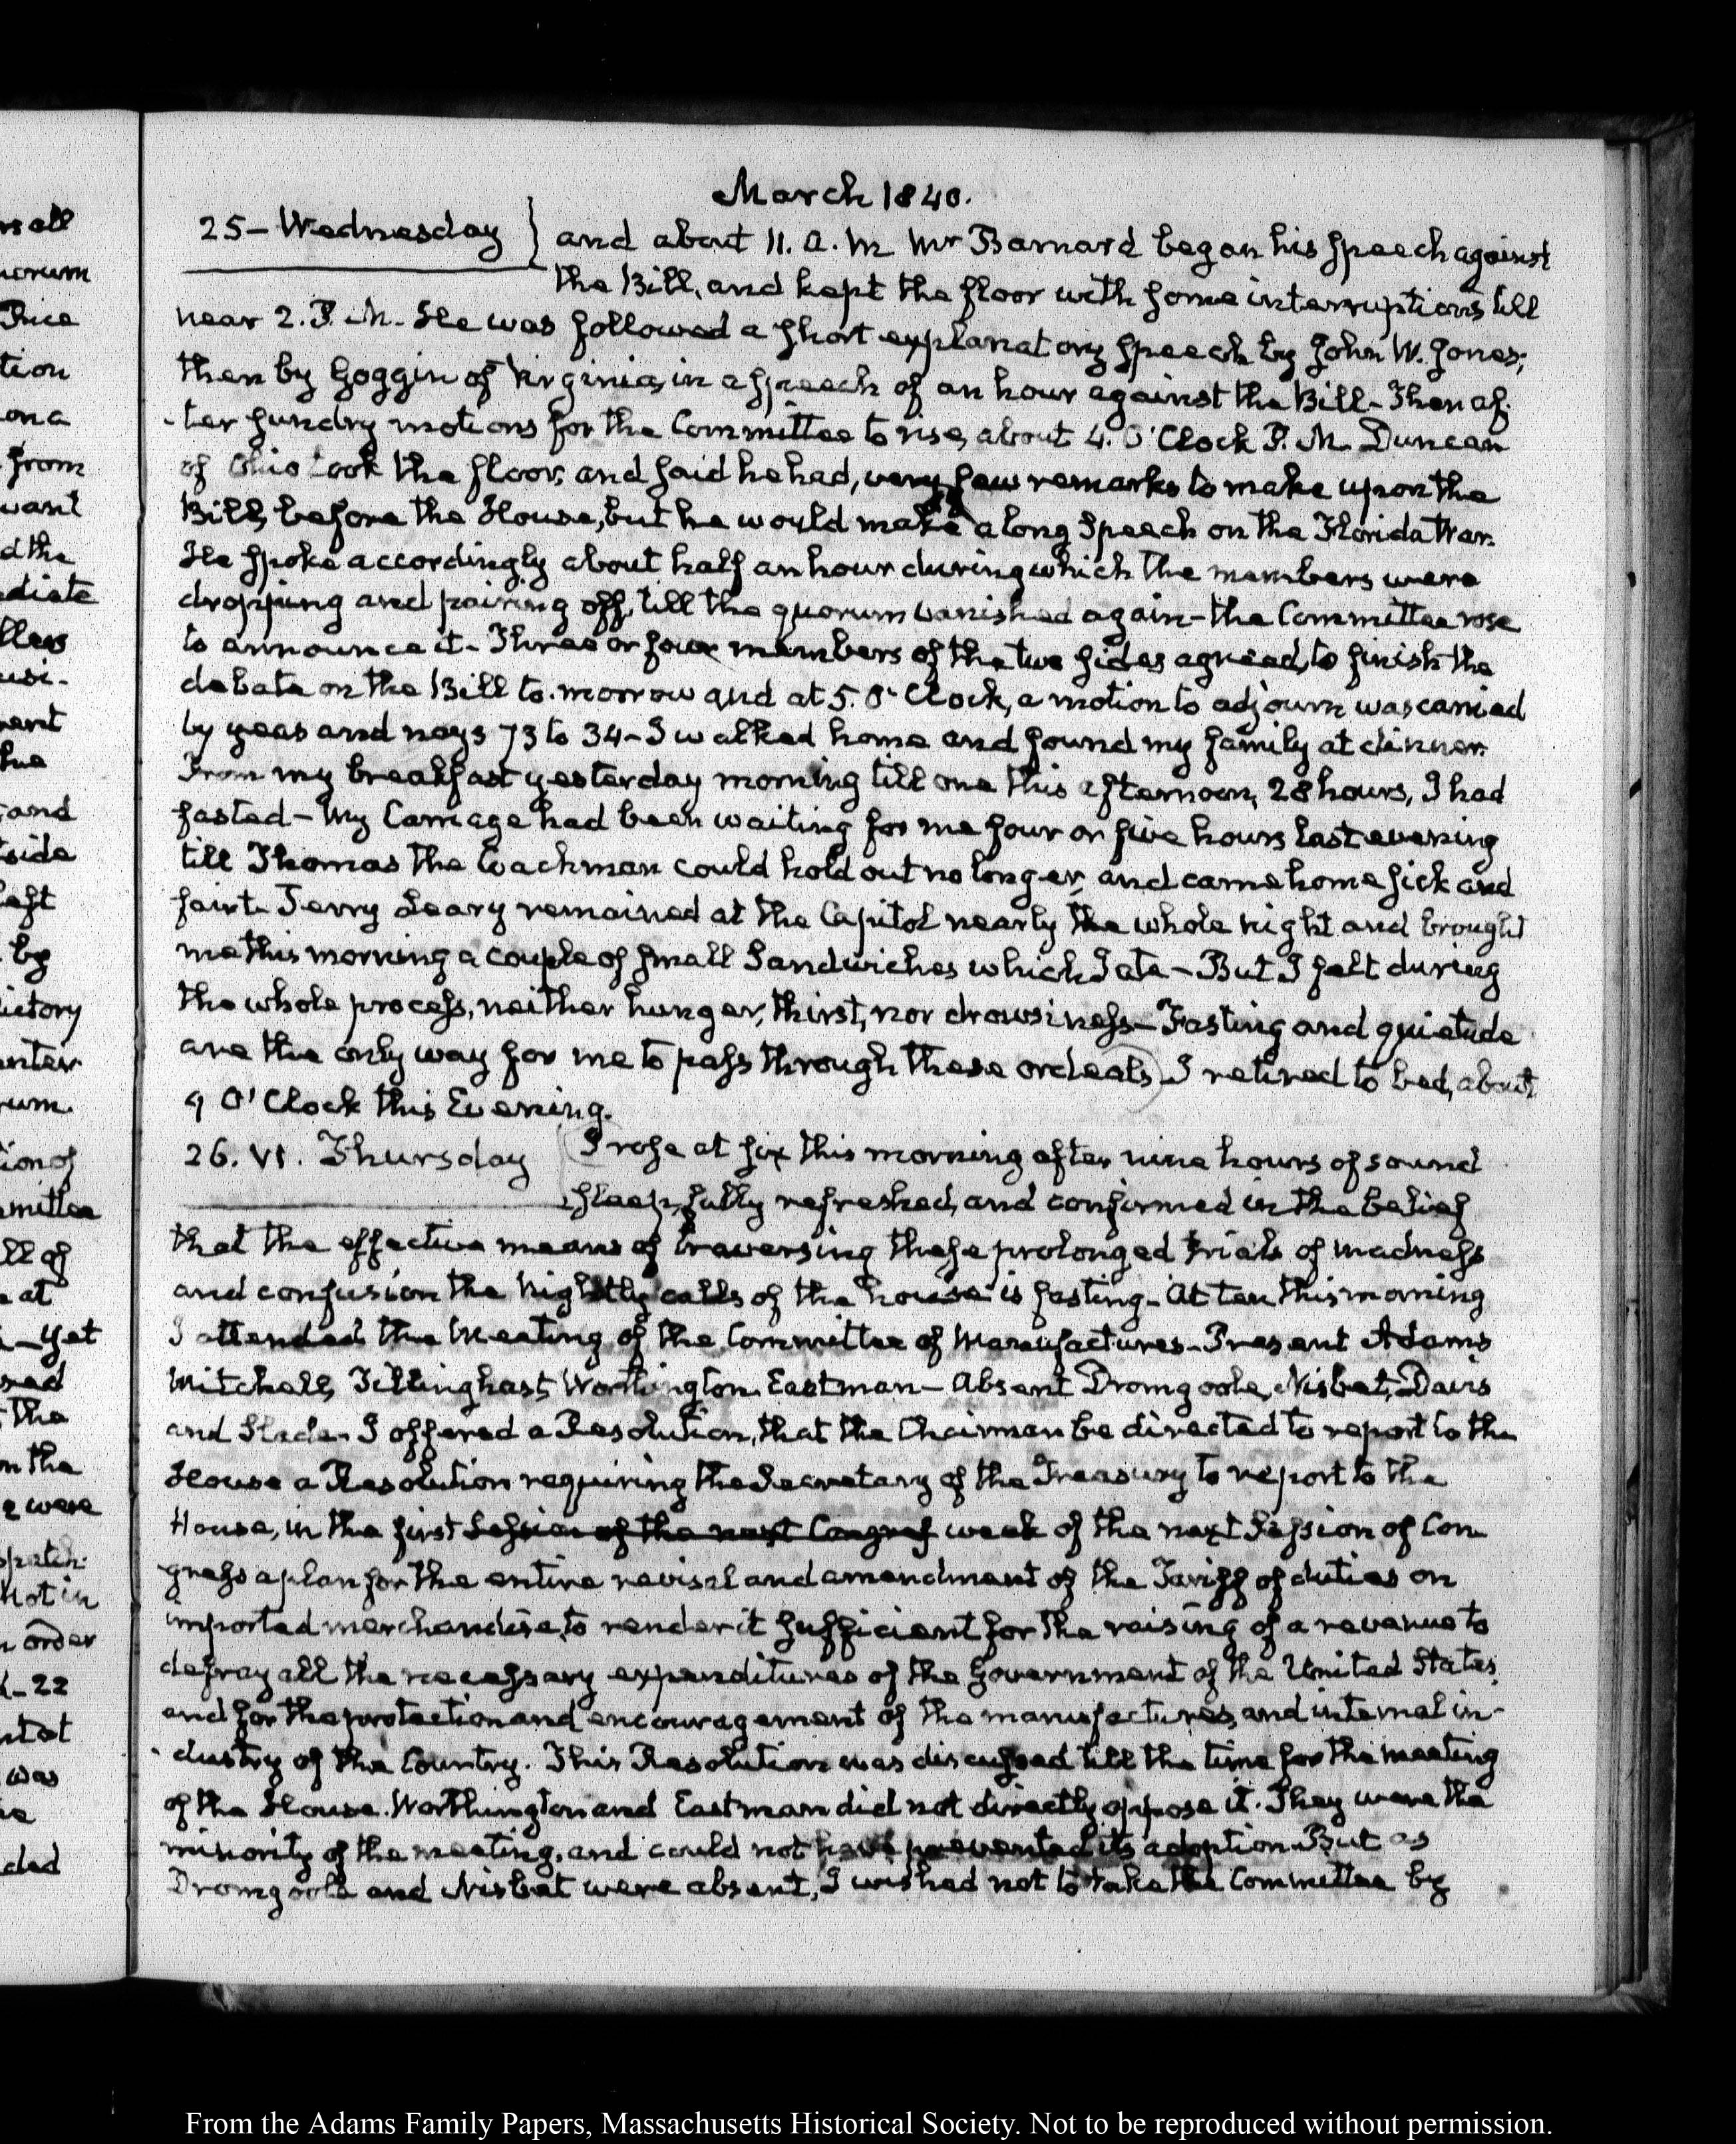 March 1840.
25 – Wednesday } and about 11. A. M Mr Barnard began his speech against
the Bill, and kept the floor with some interruptions till
near 2. P. M. He was followed a short explanatory speech by John W. Jones;
then by Goggin of Virginia, in a speech of an hour against the Bill – Then af-
-ter sundry motions for the Committee to rise, about 4. O'Clock P. M. Duncan
of Ohio took the floor, and said he had, very few remarks to make upon the
Bill, before the House, but he would make a long Speech on the Florida War.
He spoke accordingly about half an hour during which the members were
dropping and pairing off, till the quorum vanished again – the Committee rose
to announce it – Three or four members of the two sides agreed, to finish the
debate on the Bill to-morrow and at 5. O'Clock, a motion to adjourn was carried
by yeas and nays 73 to 34 – I walked home and found my family at dinner.
From my breakfast yesterday morning till one this afternoon, 28 hours, I had
fasted – My Carriage had been waiting for me four or five hours last evening
till Thomas the Coachman could hold out no longer, and came home sick and
faint – Jerry Leary remained at the Capitol nearly the whole night and brought
me this morning a couple of small Sandwiches which I ate – But I felt during
the whole process, neither hunger, thirst, nor drowsiness – Fasting and quietude
are the only way for me to pass through these ordeals) I retired to bed, about
9 O'Clock this Evening.
26. VI. Thursday I rose at six this morning after nine hours of sound
sleep, fully refreshed, and confirmed in the belief
that the effective means of traversing these prolonged trials of madness
and confusion the nightly calls of the house is fasting – At ten this morning
I attended the Meeting of the Committee of Manufactures – Present Adams
Mitchell, Tillinghast, Worthington, Eastman – Absent Dromgoole, Nisbet, Davis
and Slade – I offered a Resolution, that the Chairman be directed to report to the
House a Resolution requiring the Secretary of the Treasury to report to the
House, in the first Session of the next Congress week of the next Session of Con-
gress a plan for the entire revisal and amendment of the Tariff of duties on
imported merchandise, to render it sufficient for the raising of a revenue to
defray all the necessary expenditures of the Government of the United States,
and for the protection and encouragement of the manufactures, and internal in-
-dustry of the Country. This Resolution was discussed till the time for the meeting
of the House. Worthington and Eastman did not directly oppose it. They were the
minority of the meeting, and could not have prevented its adoption. But as
Dromgoole and Nisbet were absent, I wished not to take the Committee by
From the Adams Family Papers, Massachusetts Historical Society. Not to be reproduced without permission.